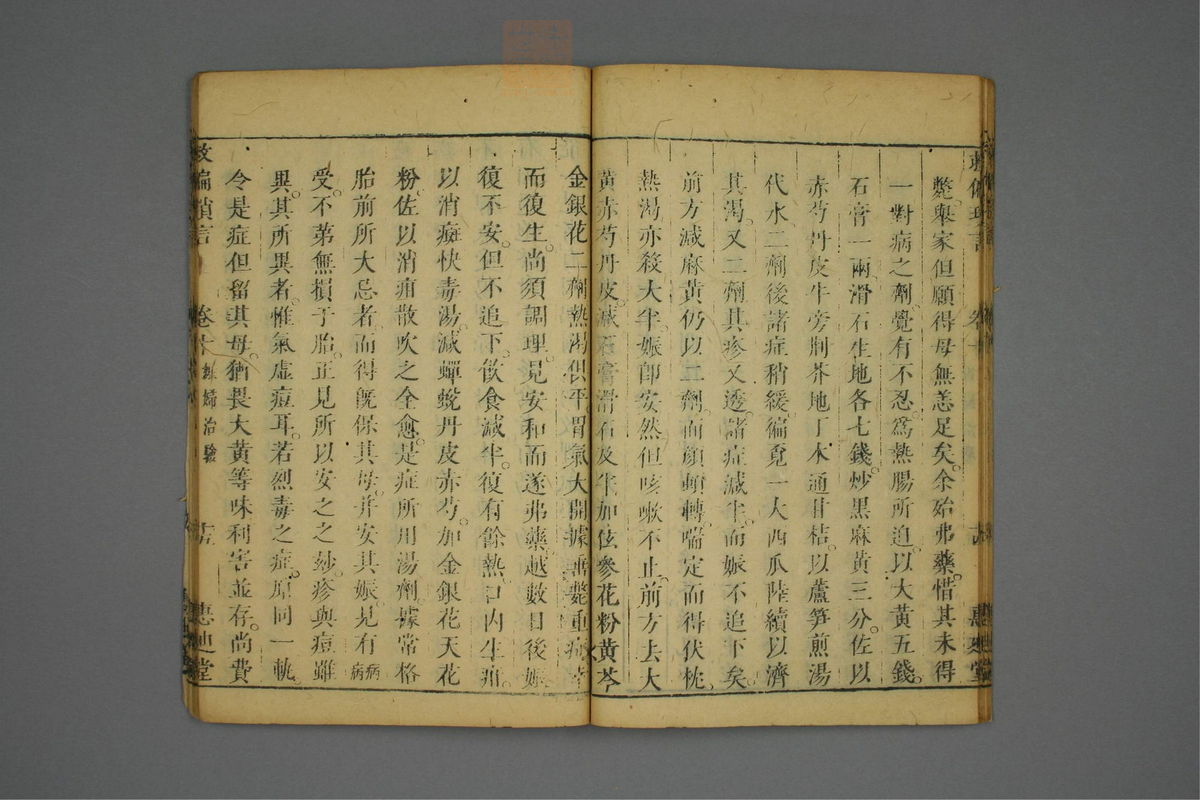 斃舉家但願得母無恙足矣余始弗藥惜其未得
一對病之劑覺有不忍為熱腸所迫以大黃五錢
石膏一兩滑石生地各七錢炒黑麻黃三分佐以
赤芍丹皮牛旁荆芥地丁木通甘桔以蘆笋煎湯
代水二劑後諸症稍緩徧覓一大西瓜陸續以濟
其渴又二劑其疹又透諸症減半而娠不追下矣
前方減麻黃仍以二劑而顏頳轉喘定而得伏枕
熱渴亦殺大半娠卽安然但咳嗽不止前方去大
黃赤芍丹皮減石膏滑石及半加伭參花粉黃芩
金銀花二劑熱渴俱平胃氣大開據垂斃重症幸
而復生尚須調理見安和而遂弗藥越數日後娠
復不安但不追下飲食減半復有餘熱口內生疳
以消癍快毒湯減蟬蛻丹皮赤芍加金銀花天花
粉佐以消疳散吹之全愈是症所用湯劑據常格
胎前所大忌者而得旣保其母并安其娠見有病病
受不第無損于胎正見所以安之之玅疹與痘雖
異其所異者惟氣虛痘耳若烈毒之症原同一軌
令是症但留其母猶畏大黃等味利害並存尚費
救偏瑣言
卷十
婦治驗
十五
惠迪堂